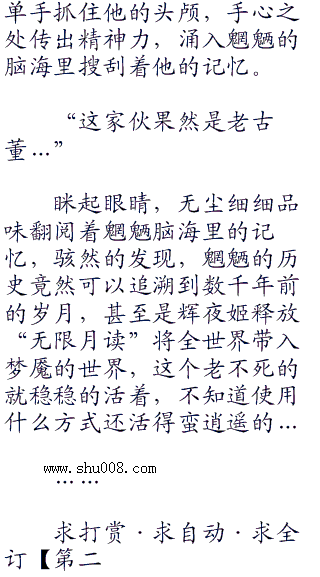 单手抓住他的头颅，手心之
处传出精神力，涌入魍魉的
脑海里搜刮着他的记忆。
“这家伙果然是老古
董…”
眯起眼睛，无尘细细品
味翻阅着魍魉脑海里的记
忆，骇然的发现，魍魉的历
史竟然可以追溯到数千年前
的岁月，甚至是辉夜姬释放
“无限月读”将全世界带入
梦魇的世界，这个老不死的
就稳稳的活着，不知道使用
什么方式还活得蛮逍遥的…
www.shu008.com
……
求打赏·求自动·求全
订【第二